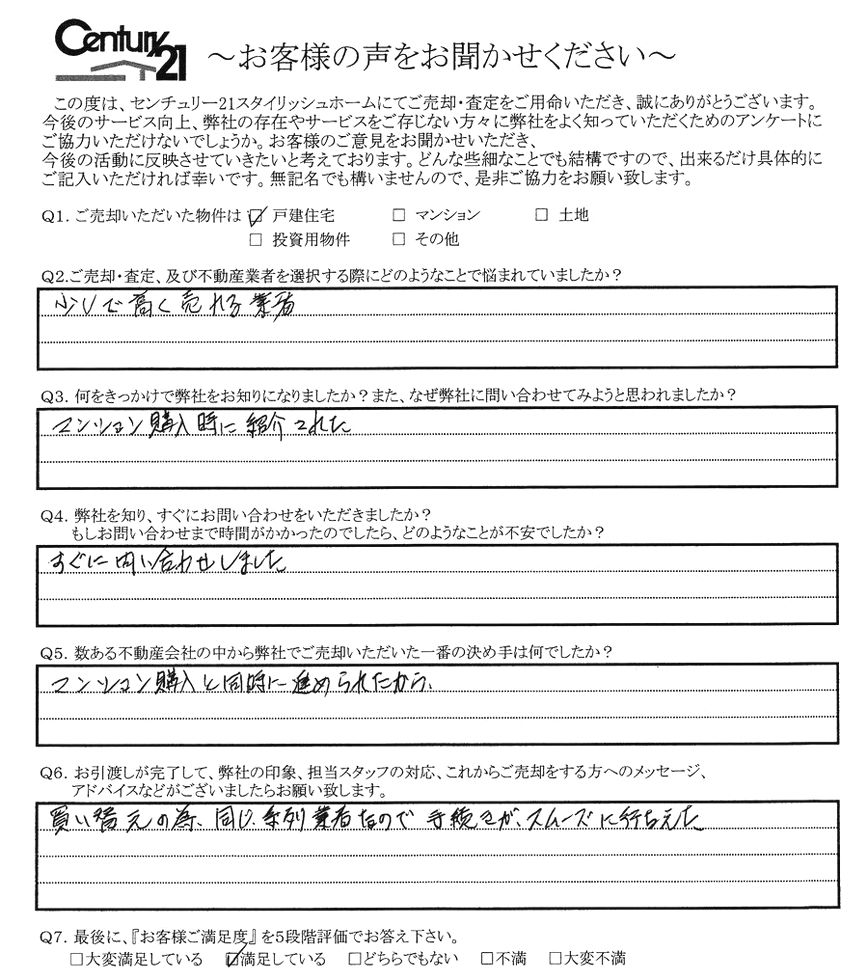 Century 21
～お客様の声をお聞かせください～
この度は、センチュリー21スタイリッシュホームにてご売却・査定をご用命いただき、誠にありがとうございます。
今後のサービス向上、弊社の存在やサービスをご存じない方々に弊社をよく知っていただくためのアンケートに
ご協力いただけないでしょうか。お客様のご意見をお聞かせいただき、
今後の活動に反映させていきたいと考えております。どんな些細なことでも結構ですので、出来るだけ具体的に
ご記入いただければ幸いです。無記名でも構いませんので、是非ご協力をお願い致します。
Q1. ご売却いただいた物件は ☑ 戸建住宅 □ マンション □ 土地
□ 投資用物件 □ その他
Q2.ご売却・査定、及び不動産業者を選択する際にどのようなことで悩まれていましたか？
少しで高く売れる業者
Q3. 何をきっかけで弊社をお知りになりましたか？また、なぜ弊社に問い合わせてみようと思われましたか？
マンション購入時に紹介された
Q4. 弊社を知り、すぐにお問い合わせをいただきましたか？
もしお問い合わせまで時間がかかったのでしたら、どのようなことが不安でしたか？
すぐに問い合わせしました
Q5. 数ある不動産会社の中から弊社でご売却いただいた一番の決め手は何でしたか？
マンション購入と同時に進められたから。
Q6. お引渡しが完了して、弊社の印象、担当スタッフの対応、これからご売却をする方へのメッセージ、
アドバイスなどがございましたらお願い致します。
買い替えの為、同じ系列業者なので手続きが、スムーズに行らえた。
Q7. 最後に、『お客様ご満足度』を5段階評価でお答え下さい。
□大変満足している ☑満足している □どちらでもない □不満 □大変不満